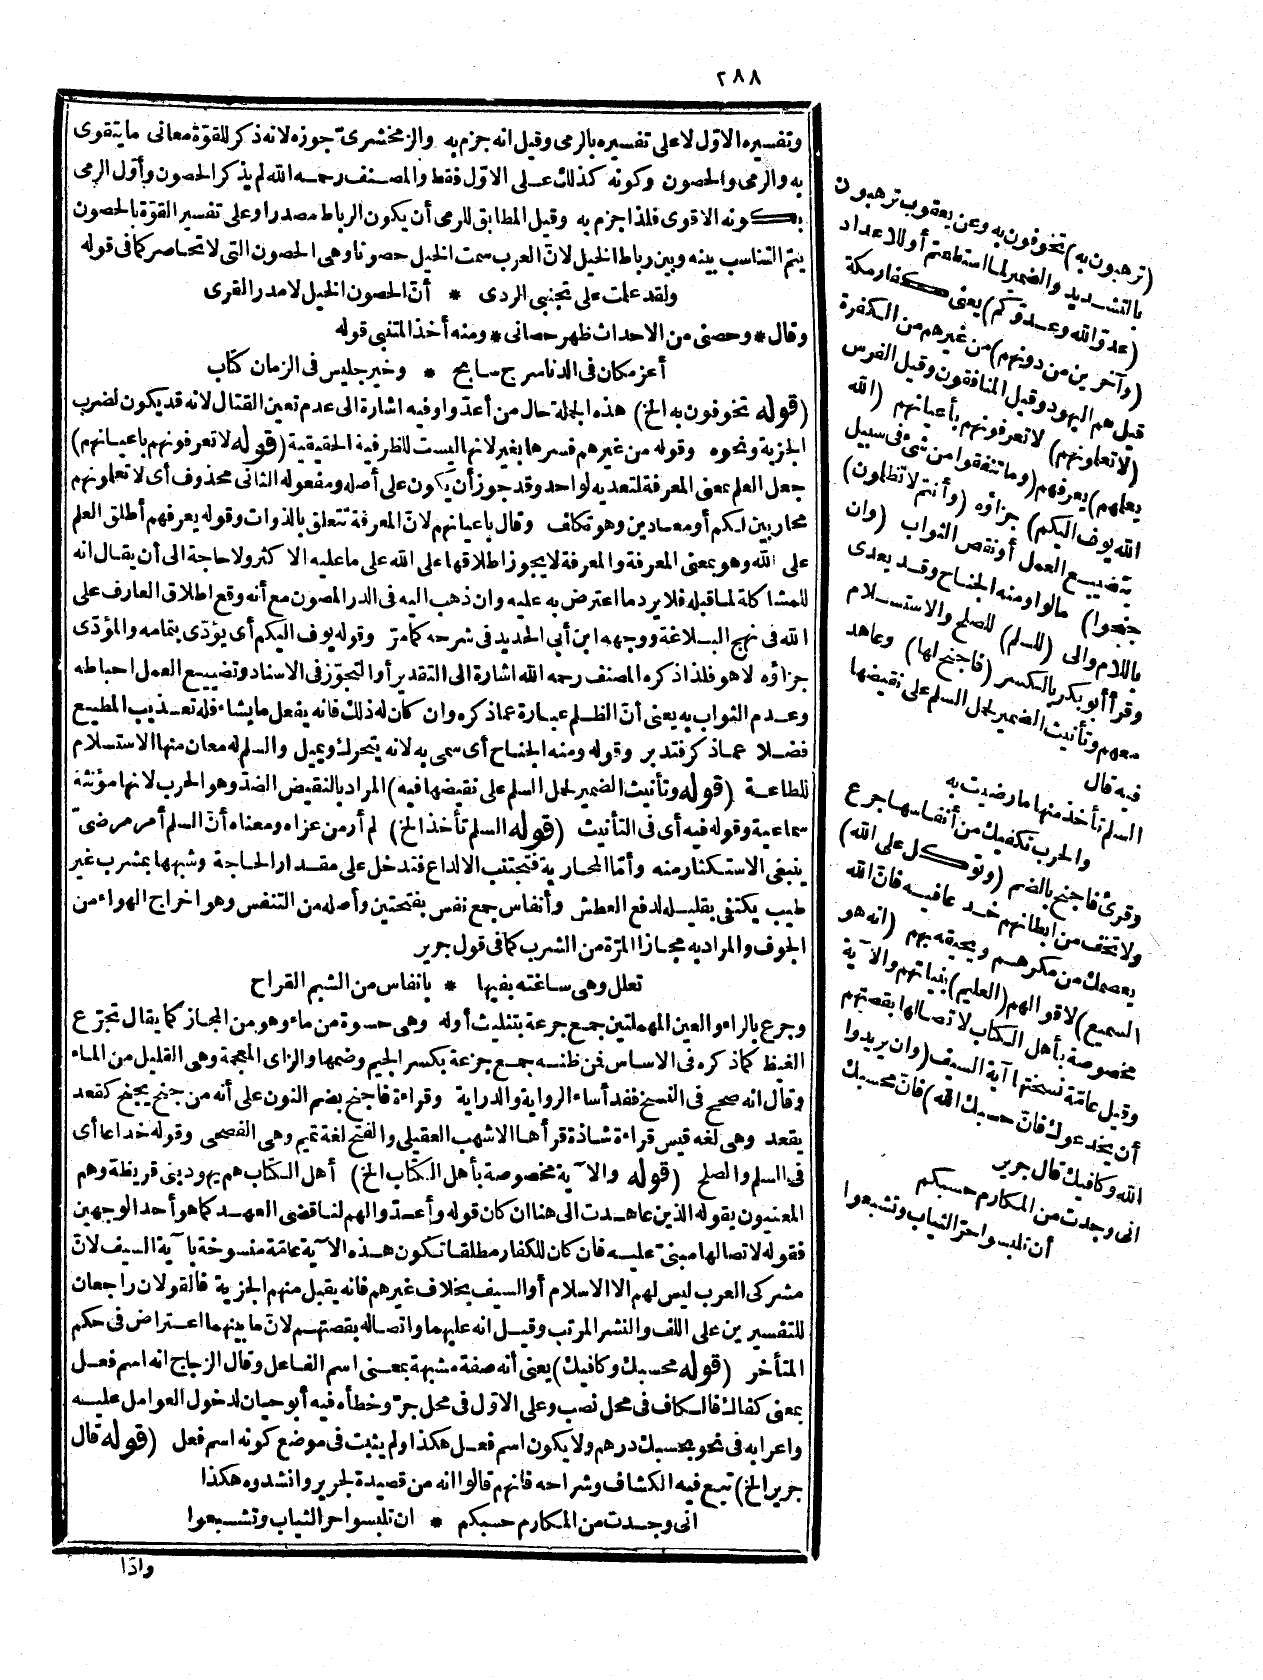 ٢٨٨
وتفسيره الاوّل لا على تفسيره بالرمى وقيل انه جزم به والزمخشرىّ جوزه لانه ذكر للقوّة معانى ما يتقوى
به والرمى والحصون وكونه كذلك على الاوّل فقط والمصنف رحمه الله لم يذكر الحصون وأوّل الرمى
بكونه الاقوى فلذا جزم به وقيل المطابق للرمى أن يكون الرباط مصدرا وعلى تفسير القوّة بالحصون
يتم التناسب بينه وبين رباط الخيل لانّ العرب سمت الخيل حصونا وهى الحصون التى لا تحاصر كما فى قوله
ولقد علمت على تجنبى الردى * أنّ الحصون الخيل لا مدر القرى
وقال * وحصنى من الاحداث ظهر حصانى * ومنه أخذ المتنبى قوله
أعز مكان فى الدنا سرج سابح * وخير جليس فى الزمان كتاب
(قوله تخوفون به الخ) هذه الجملة حال من أعدّوا وفيه اشارة الى عدم تعين القتال لانه قد يكون لضرب
الجزية ونحوه وقوله من غيرهم فسرها بغير لانها ليست للظرفية الحقيقية (قوله لا تعرفونهم باعيانهم)
جعل العلم بمعنى المعرفة لتعديه لواحد وقد جوز أن يكون على أصله ومفعوله الثانى محذوف أى لا تعلمونهم
محاربين لكم أو معادين وهو تكلف وقال باعيانهم لانّ المعرفة تتعلق بالذوات وقوله يعرفهم أطلق العلم
على الله وهو بمعنى المعرفة والمعرفة لا يجوز اطلاقها على الله على ما عليه الاكثر ولا حاجة الى أن يقال انه
للمشاكلة لما قبله فلا يرد ما اعترض به عليه وان ذهب اليه فى الدر المصون مع أنه وقع اطلاق العارف على
الله فى نهج البلاغة ووجهه ابن أبى الحديد فى شرحه كما مرّ وقوله يوف اليكم أى يؤدّى بتمامه والمؤدّى
جزاؤه لا هو فلذا ذكره المصنف رحمه الله اشارة الى التقدير أو التجوّز فى الاسناد وتضييع العمل احباطه
وعدم الثواب به يعنى أنّ الظلم عبارة عما ذكره وان كان له ذلك فانه يفعل ما يشاء فله تعذيب المطيع
فضلا عما ذكر فتدبر وقوله ومنه الجناح أى سمى به لانه يتحرك ويميل والسلم له معان منها الاستسلام
للطاعة (قوله وتأنيث الضمير لحمل السلم على نقيضها فيه) المراد بالنقيض الضدّ وهو الحرب لانها مؤنثة
سماعية وقوله فيه أى فى التأنيث (قوله السلم تأخذ الخ) لم أر من عزاه ومعناه أنّ السلم أمر مرضىّ
ينبغى الاستكثار منه وأمّا المحاربة فتجتنب الا لداع فتدخل على مقدار الحاجة وشبهها بمشرب غير
طيب يكتفى بقليله لدفع العطش وأنفاس جمع نفس بفتحتين وأصله من التنفس وهو اخراج الهواء من
الجوف والمراد به مجازا المرّة من الشرب كما فى قول جرير
تعلل وهى ساغته بفيها * بانفاس من الشبم القراح
وجرع بالراء والعين المهملتين جمع جرعة بتثليث أوله وهى حسوة من ماء وهو من المجاز كما يقال تجرّع
الغيظ كما ذكره فى الاساس فمن ظنه جمع جزعة بكسر الجيم وضمها والزاى المعجمة وهى القليل من الماء
وقال انه صحح فى النسخ فقد أساء الرواية والدراية وقراءة فاجنح بضم النون على أنه من جنح يجنح كقعد
يقعد وهى لغه قيس قراءة شاذة قرأها الاشهب العقيلى والفتح لغة تميم وهى الفصحى وقوله خداعا أى
فى السلم والصلح (قوله والآية مخصوصة بأهل الكتاب الخ) أهل الكتاب هم يهود بنى قريظة وهم
المعنيون بقوله الذين عاهدت الى هنا ان كان قوله وأعدّوا لهم لناقضى العهد كما هو أحد الوجهين
فقوله لاتصالها مبنىّ عليه فان كان للكفار مطلقا تكون هذه الآية عامّة منسوخة بآية السيف لانّ
مشركى العرب ليس لهم الا الاسلام أو السيف بخلاف غيرهم فانه يقبل منهم الجزية فالقولان راجعان
للتفسيرين على اللف والنشر المرتب وقيل انه عليهما واتصاله بقصتهم لانّ ما بينهما اعتراض فى حكم
المتأخر (قوله محسبك وكافيك) يعنى أنه صفة مشبهة بمعنى اسم الفاعل وقال الزجاج انه اسم فعل
بمعنى كفاك فالكاف فى محل نصب وعلى الاوّل فى محل جرّ وخطأه فيه أبو حيان لدخول العوامل عليه
واعرابه فى نحو بحسبك درهم ولا يكون اسم فعل هكذا ولم يثبت فى موضع كونه اسم فعل (قوله قال
جرير الخ) تبع فيه الكشاف وشراحه فانهم قالوا انه من قصيدة لجرير وانشدوه هكذا
انى وجدت من المكارم حسبكم * ان تلبسوا حر الثياب وتشبعوا
واذا
(ترهبون به) تخوفون به وعن يعقوب ترهبون
بالتشديد والضمير لما استطعتم أو للاعداد
(عدوّ الله وعدوّكم) يعنى كفار مكة
(وآخرين من دونهم) من غيرهم من الكفرة
قيل هم اليهود وقيل المنافقون وقيل الفرس
(لا تعلمونهم) لا تعرفونهم بأعيانهم (الله
يعلمهم) يعرفهم (وما تنفقوا من شئ فى سبيل
الله يوف اليكم) جزاؤه (وأنتم لا تظلمون)
بتضييع العمل أو نقص الثواب (وان
جنحوا) مالوا ومنه الجناح وقد يعدى
باللام والى (للسلم) للصلح والاستسلام
وقرأ أبو بكر بالكسر (فاجنح لها) وعاهد
معهم وتأنيث الضمير لحمل السلم على نقيضها
فيه قال
السلم تأخذ منها ما رضيت به
والحرب تكفيك من أنفاسها جرع
وقرئ فاجنح بالضم (وتوكل على الله)
ولا تخف من ابطانهم خداعا فيه فانّ الله
يعصمك من مكرهم ويحيقه بهم (انه هو
السميع) لاقوالهم (العليم) بنياتهم والآية
مخصوصة بأهل الكتاب لاتصالها بقصتهم
وقيل عامّة نسختها آية السيف (وان يريدوا
أن يخدعوك فانّ حسبك الله) فانّ محسبك
الله وكافيك قال جرير
انى وجدت من المكارم حسبكم
أن تلبسوا حرّ الثياب وتشبعوا